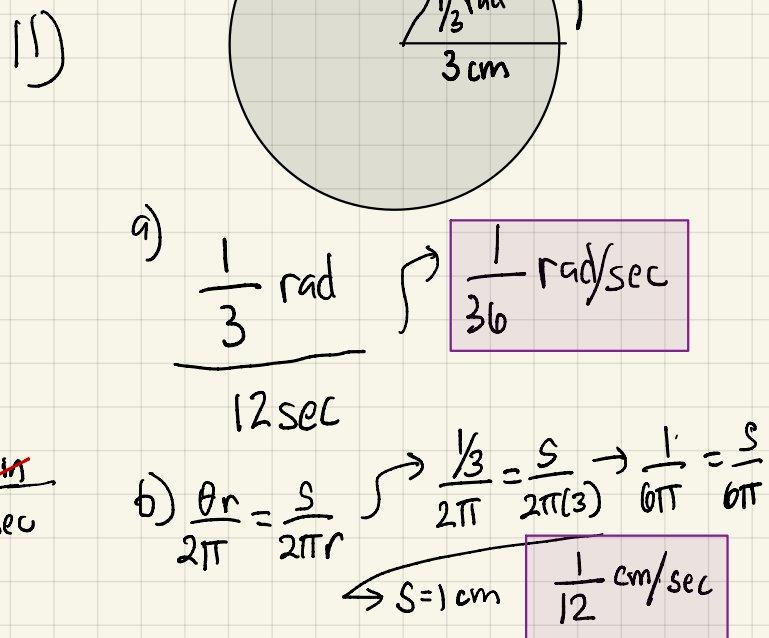 11)
1/3 rad
3 cm
a)
1/3 rad
12 sec
1/36 rad/sec
b) θr/2π = S/2πr
1/3/2π = S/2π(3) → 1/6π = S/6π
→ S = 1 cm
1/12 cm/sec